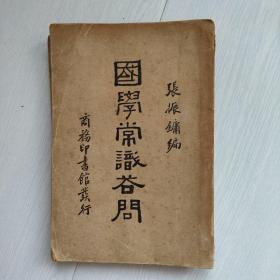 張振鏞編
國學常識荅問
商務印書館發行